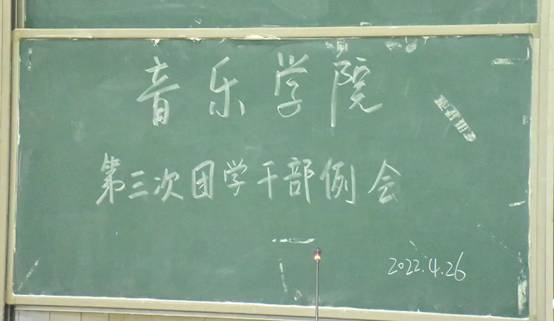 音乐学院
第三次团学干部例会
2022.4.26